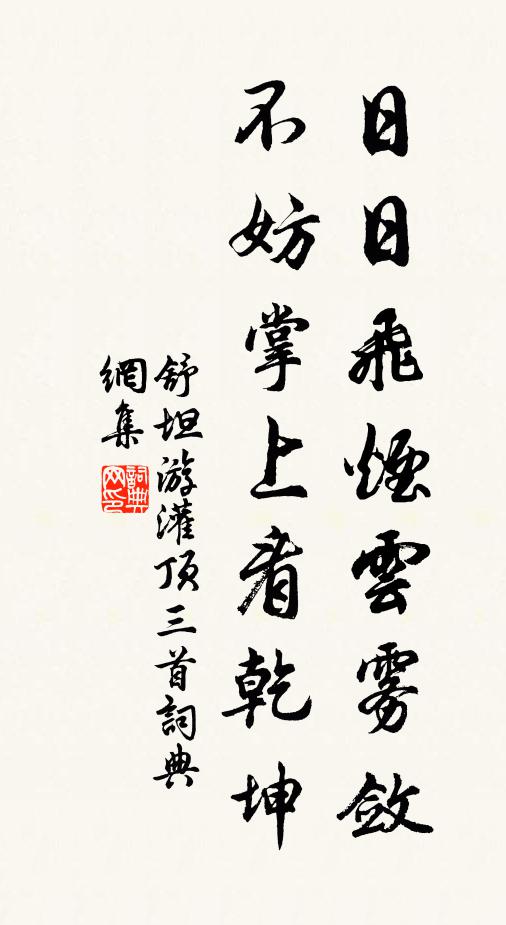 日日飛煙雲雾斂
不妨掌上看乾坤
舒坦游灌顶三首詞典
網集
詞典網印